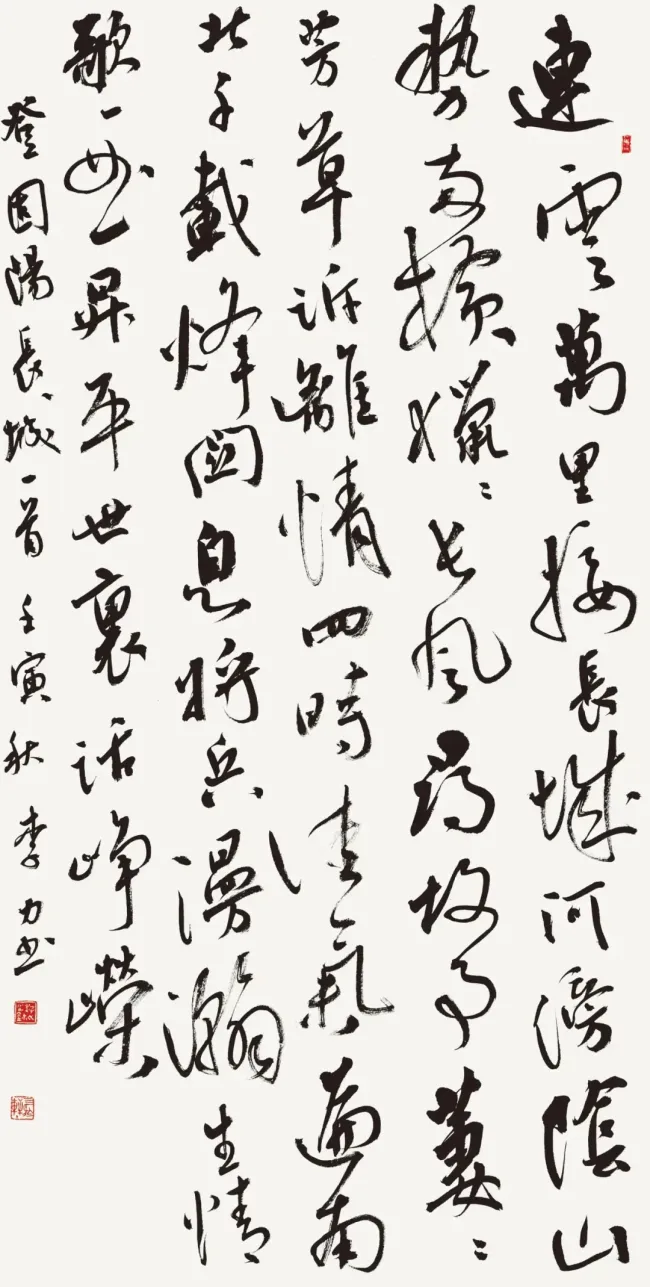 連雲萬里接長城河傍陰山
勢兩橫獵〻長風尋故事萋〻
芳草訴離情四時佳氣遍南
北千載烽關息將兵漫瀚生情
歌一曲昇平世裏話崢嶸
登固陽長城一首 壬寅秋 李力書